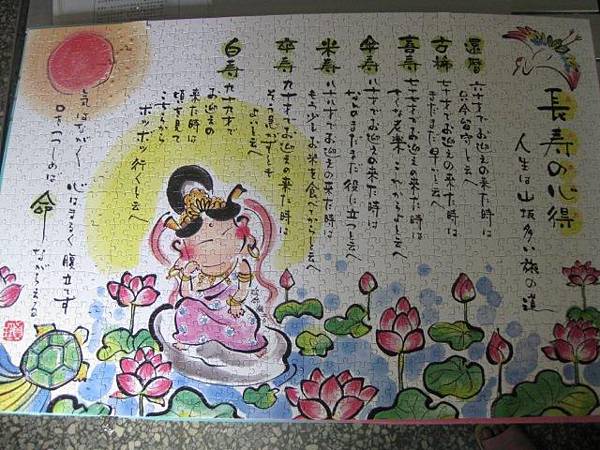 長寿の心得
人生は山坂多い旅の道
還暦
六十才でお迎えの来た時は
只今留守と云へ
古稀
七十才でお迎えの来た時は
まだまだ早いと云へ
喜寿
七十七才でお迎えの来た時は
せくな老楽これからよと云へ
傘寿
八十才でお迎えの来た時は
なんのまだまだ役に立つと云へ
米寿
八十八才でお迎えの来た時は
もう少しお米を食べてからと云へ
卒寿
九十才でお迎えの来た時は
そう急かずとも
よいと云へ
白寿
九十九才で
お迎えの
来た時は
頃を見て
こちらから
ボツボツ行くと云へ
気はながく 心はまるく 腹立てず
口をつつしめば 命 ながらえる